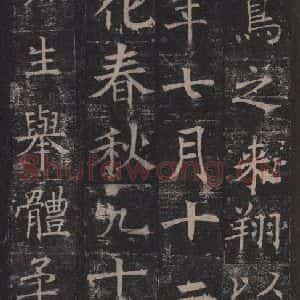 鳥之来翔以
年七月十二
化春秋九十
生舉體柔
Shufawang.cn